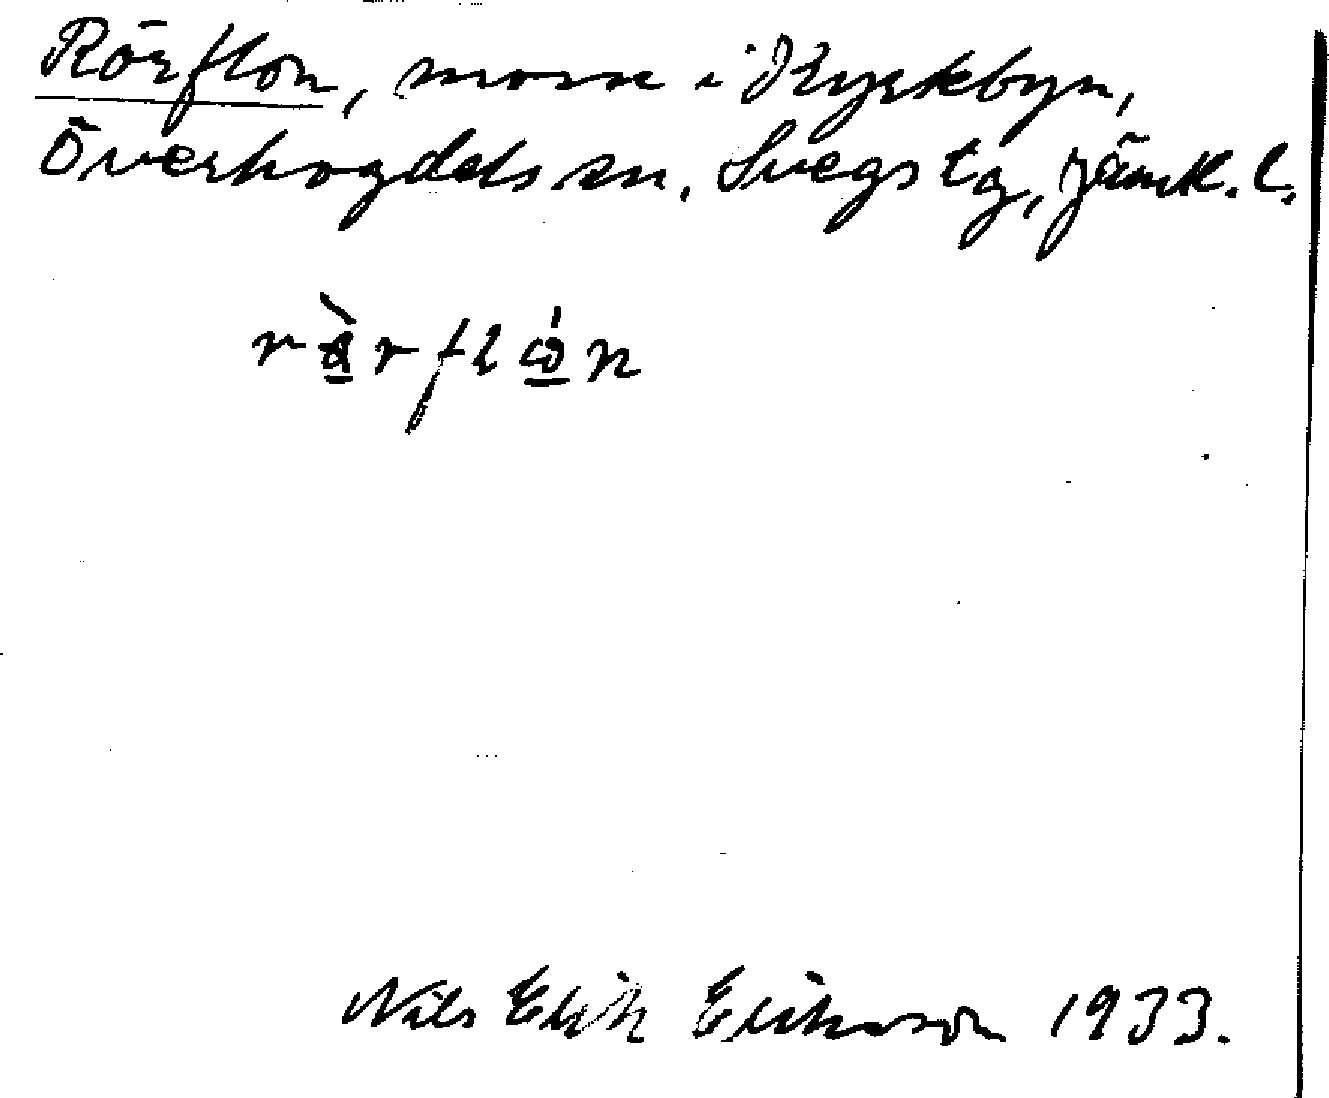 Rörflon, mosse i Kyrkbyn,
Överhogdals sn. Svegs tg, Jämtl. l.
Nils Erik Eriksson 1933.